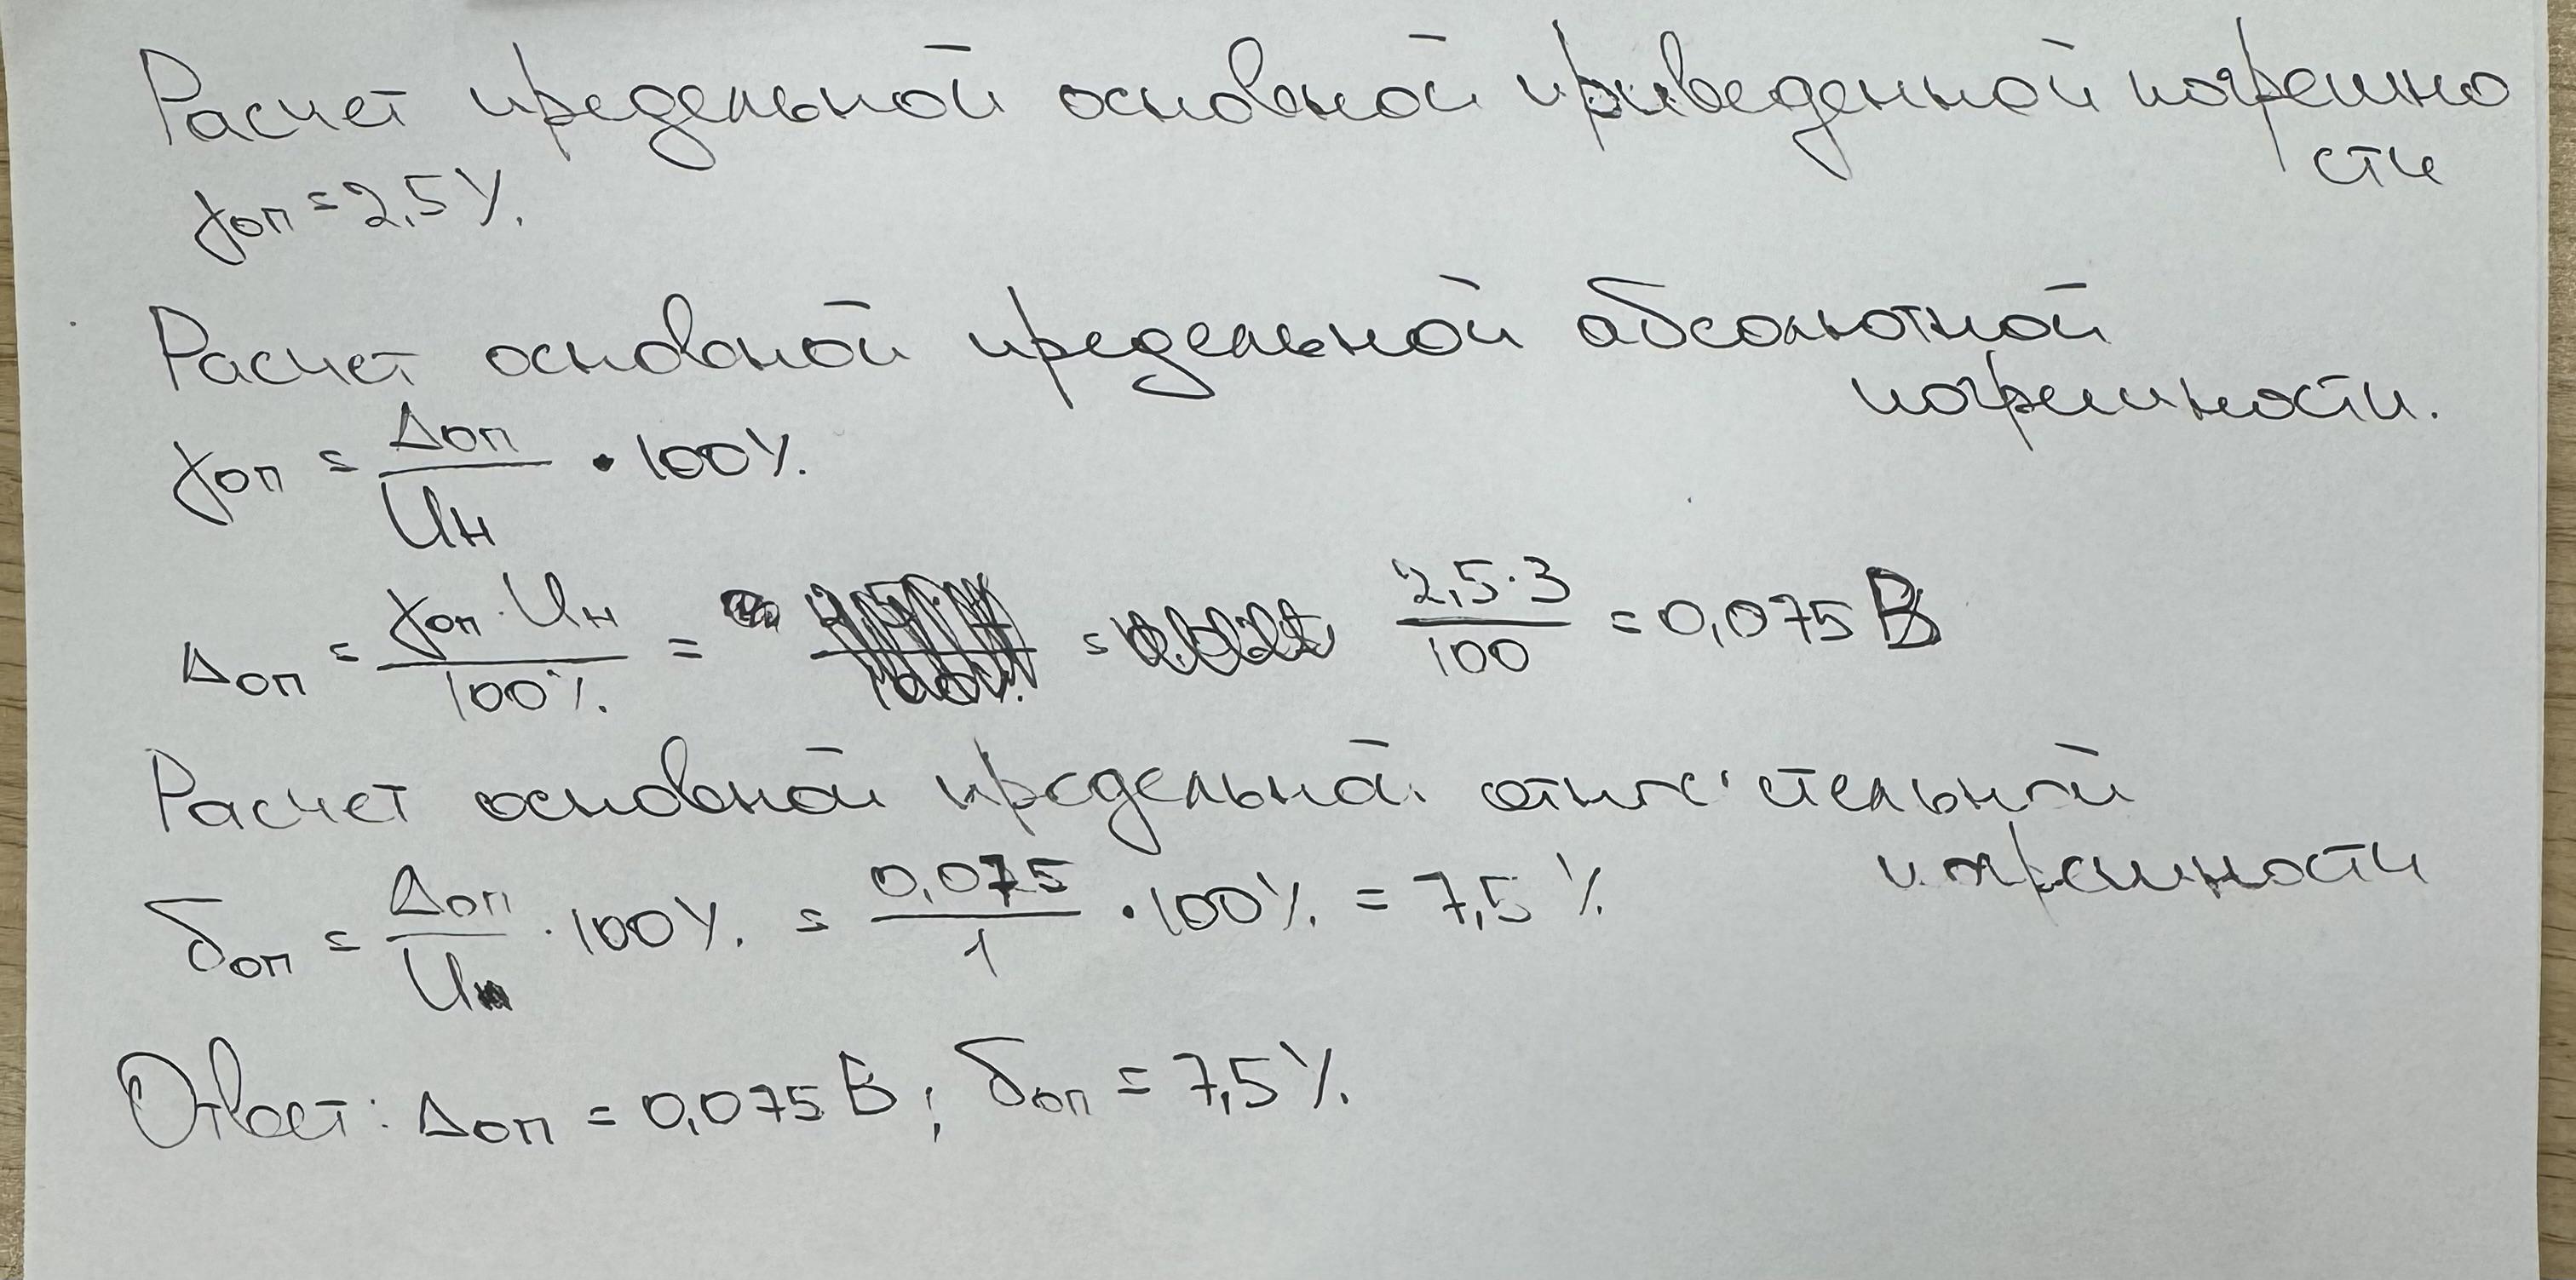 Расчет предельной основной приведенной погрешно
сти
γоп = 2,5 %.
Расчет основной предельной абсолютной
погрешности.
γоп = Δоп / Uн · 100 %.
Δоп = γоп · Uн / 100 %. = = 2,5 · 3 / 100 = 0,075 В
Расчет основной предельной относительной
погрешности
δоп = Δоп / U · 100 %. = 0,075 / 1 · 100 %. = 7,5 %
Ответ: Δоп = 0,075 В; δоп = 7,5 %.